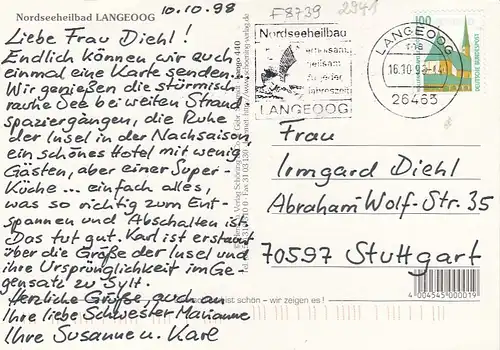 Nordseeheilbad LANGEOOG
10.10.98
F8739
2941
Liebe Frau Diehl!
Endlich können wir auch
einmal eine Karte senden.
Wir genießen die stürmisch
rauhe See bei weiten Strand
spaziergängen, die Ruhe
der Insel in der Nachsaison,
ein schönes Hotel mit wenig
Gästen, aber einer Super-
Küche ... einfach alles,
was so richtig zum Ent-
spannen und Abschalten ist.
Das tut gut. Karl ist erstaunt
über die Größe der Insel und
ihre Ursprünglichkeit im Ge-
gensatz zu Sylt.
Herzliche Grüße, auch an
Ihre liebe Schwester Marianne
Ihre Susanne u. Karl
Nordseeheilbau
LANGEOOG
LANGEOOG
16.10.9
26465
100
DEUTSCHE BUNDESPOST
Frau
Irmgard Diehl
Abraham-Wolf-Str. 35
70597 Stuttgart
ist schön – wir zeigen es!
4 004545 000019